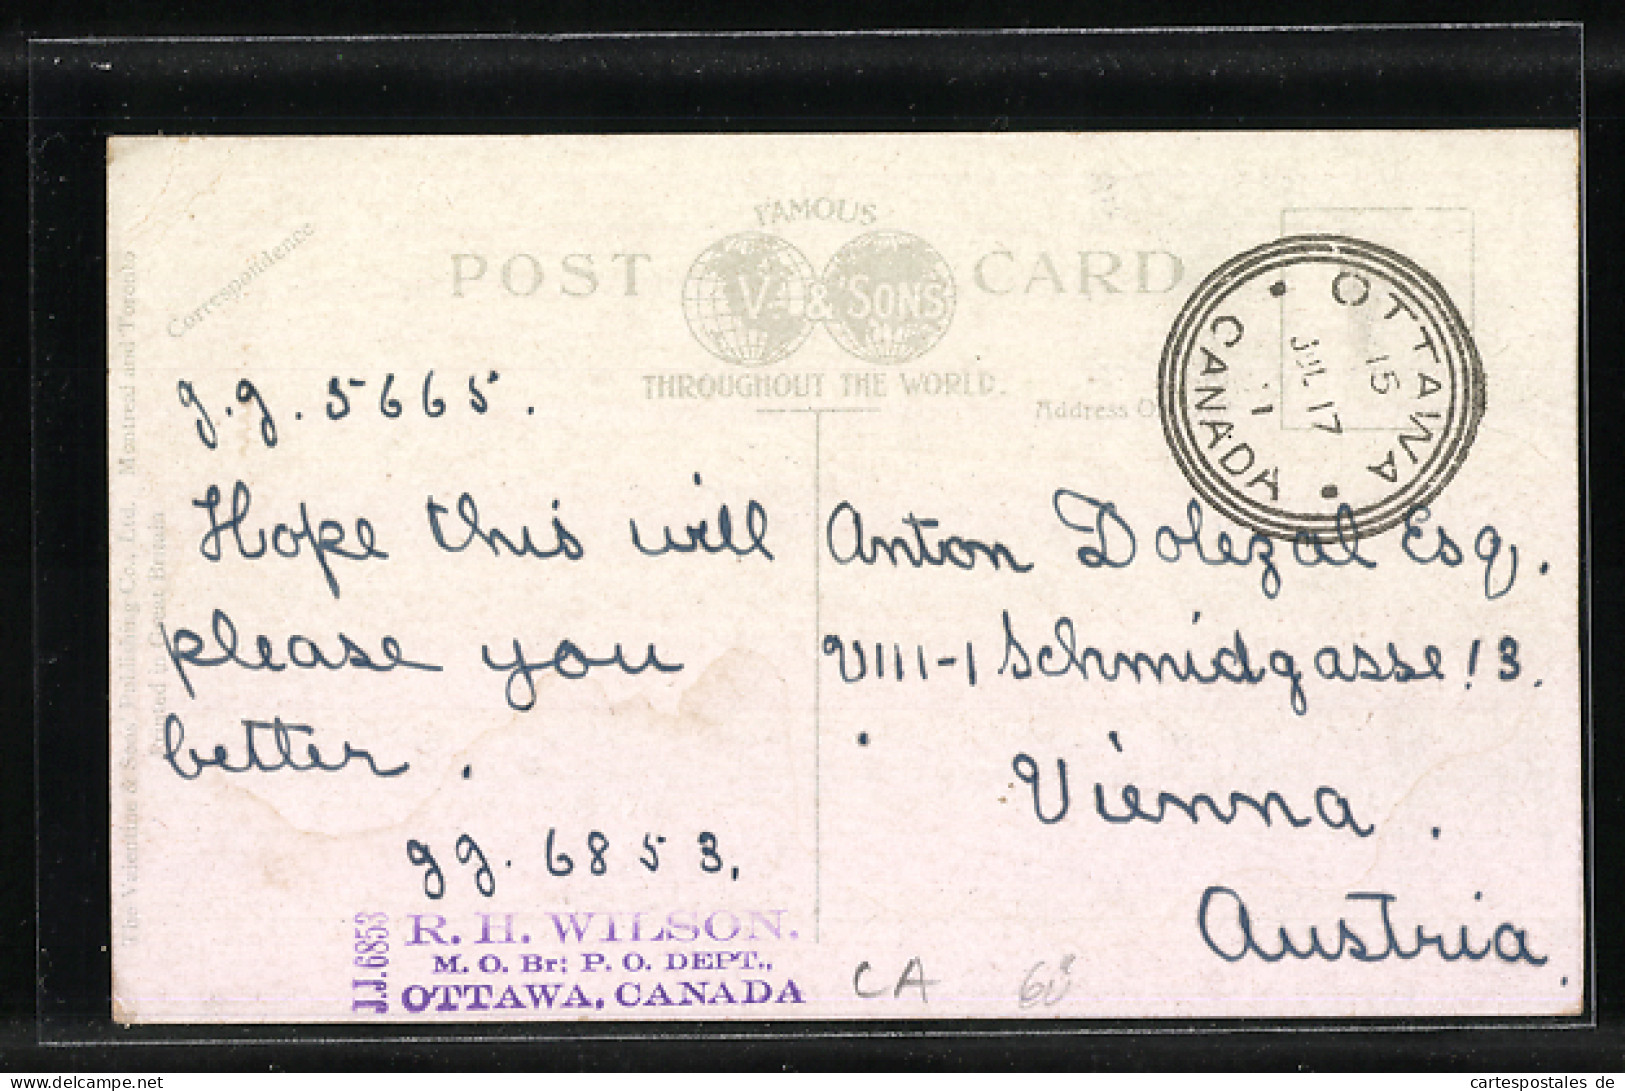 FAMOUS
POST CARD
V. & SONS
THROUGHOUT THE WORLD.
Correspondence
Address
OTTAWA
15
JUL 17
11
CANADA
J.J. 5665.
Hope this will
please you
better.
JJ. 6853.
Anton Dolezal Esq.
VIII-1 Schmidgasse 13.
Vienna.
Austria.
J.J.6853
R. H. WILSON.
M. O. Br: P. O. DEPT.,
OTTAWA, CANADA
CA 68
The Valentine & Sons Publishing Co., Ltd. Montreal and Toronto
Printed in Great Britain
cartespostales de